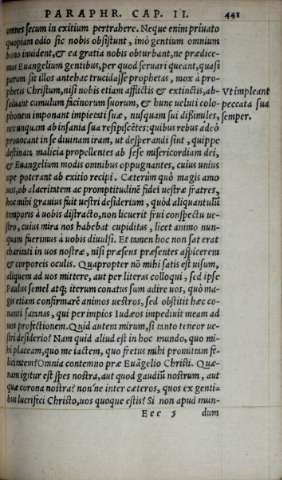 PARAPHR. CAP. II. 441
omnes secum in exitium pertrahere. Neque enim priuato
quopiam odio sic nobis obsistunt, imò gentium omnium
bono inuident, & ea gratia nobis obturbant, ne prædice-
mus Euangelium gentibus, per quod seruari queant, quasi
parum sit illos antehac trucidasse prophetas, mox à pro-
phetis Christum, nisi nobis etiam afflictis & extinctis, ab-
soluant cumulum facinorum suorum, & hunc ueluti colo-
phonem imponant impietati suæ, nusquam sui dissimiles,
nec unquam ab insania sua resipiscētes: quibus rebus adeò
prouocant in se diuinam iram, ut desperandi sint, quippe
destinata malicia propellentes ab sese misericordiam dei,
& Euangelium modis omnibus oppugnantes, cuius unius
ope poterant ab exitio recipi. Cæterùm quò magis amo
uos, ob alacrintem ac promptitudinē fidei uestræ fratres,
hoc mihi grauius fuit uestri desiderium, quòd aliquantulū
temporis à uobis distracto, non licuerit frui conspectu ue-
stro, cuius mira nos habebat cupiditas, licet animo nun-
quam fuerimus à uobis diuulsi. Et tamen hoc non sat erat
charitati in uos nostræ, nisi præsens præsentes aspicerem
& corporeis oculis. Quapropter nō mihi satis est uisum,
aliquem ad uos mittere, aut per literas colloqui, sed ipse
Paulus semel atq; iterum conatus sum adire uos, quò ma-
gis etiam confirmarē animos uestros, sed obstitit hæc co-
nanti satanas, qui per impios Iudæos impediuit meam ad
uos profectionem. Quid autem mirum, si tanto teneor ue-
stri desiderio? Nam quid aliud est in hoc mundo, quo mi-
hi placeam, quo me iactem, quo fretus mihi promittam fe-
licitatem? Omnia contemno præ Euāgelio Christi. Quæ-
nam igitur est spes nostra, aut quod gaudiū nostrum, aut
quæ corona nostra? non'ne inter cæteros, quos ex genti-
bus lucrifeci Christo, uos quoque estis? Si non apud mun-
Eee 3 dum
Vt impleant
peccata sua
semper.